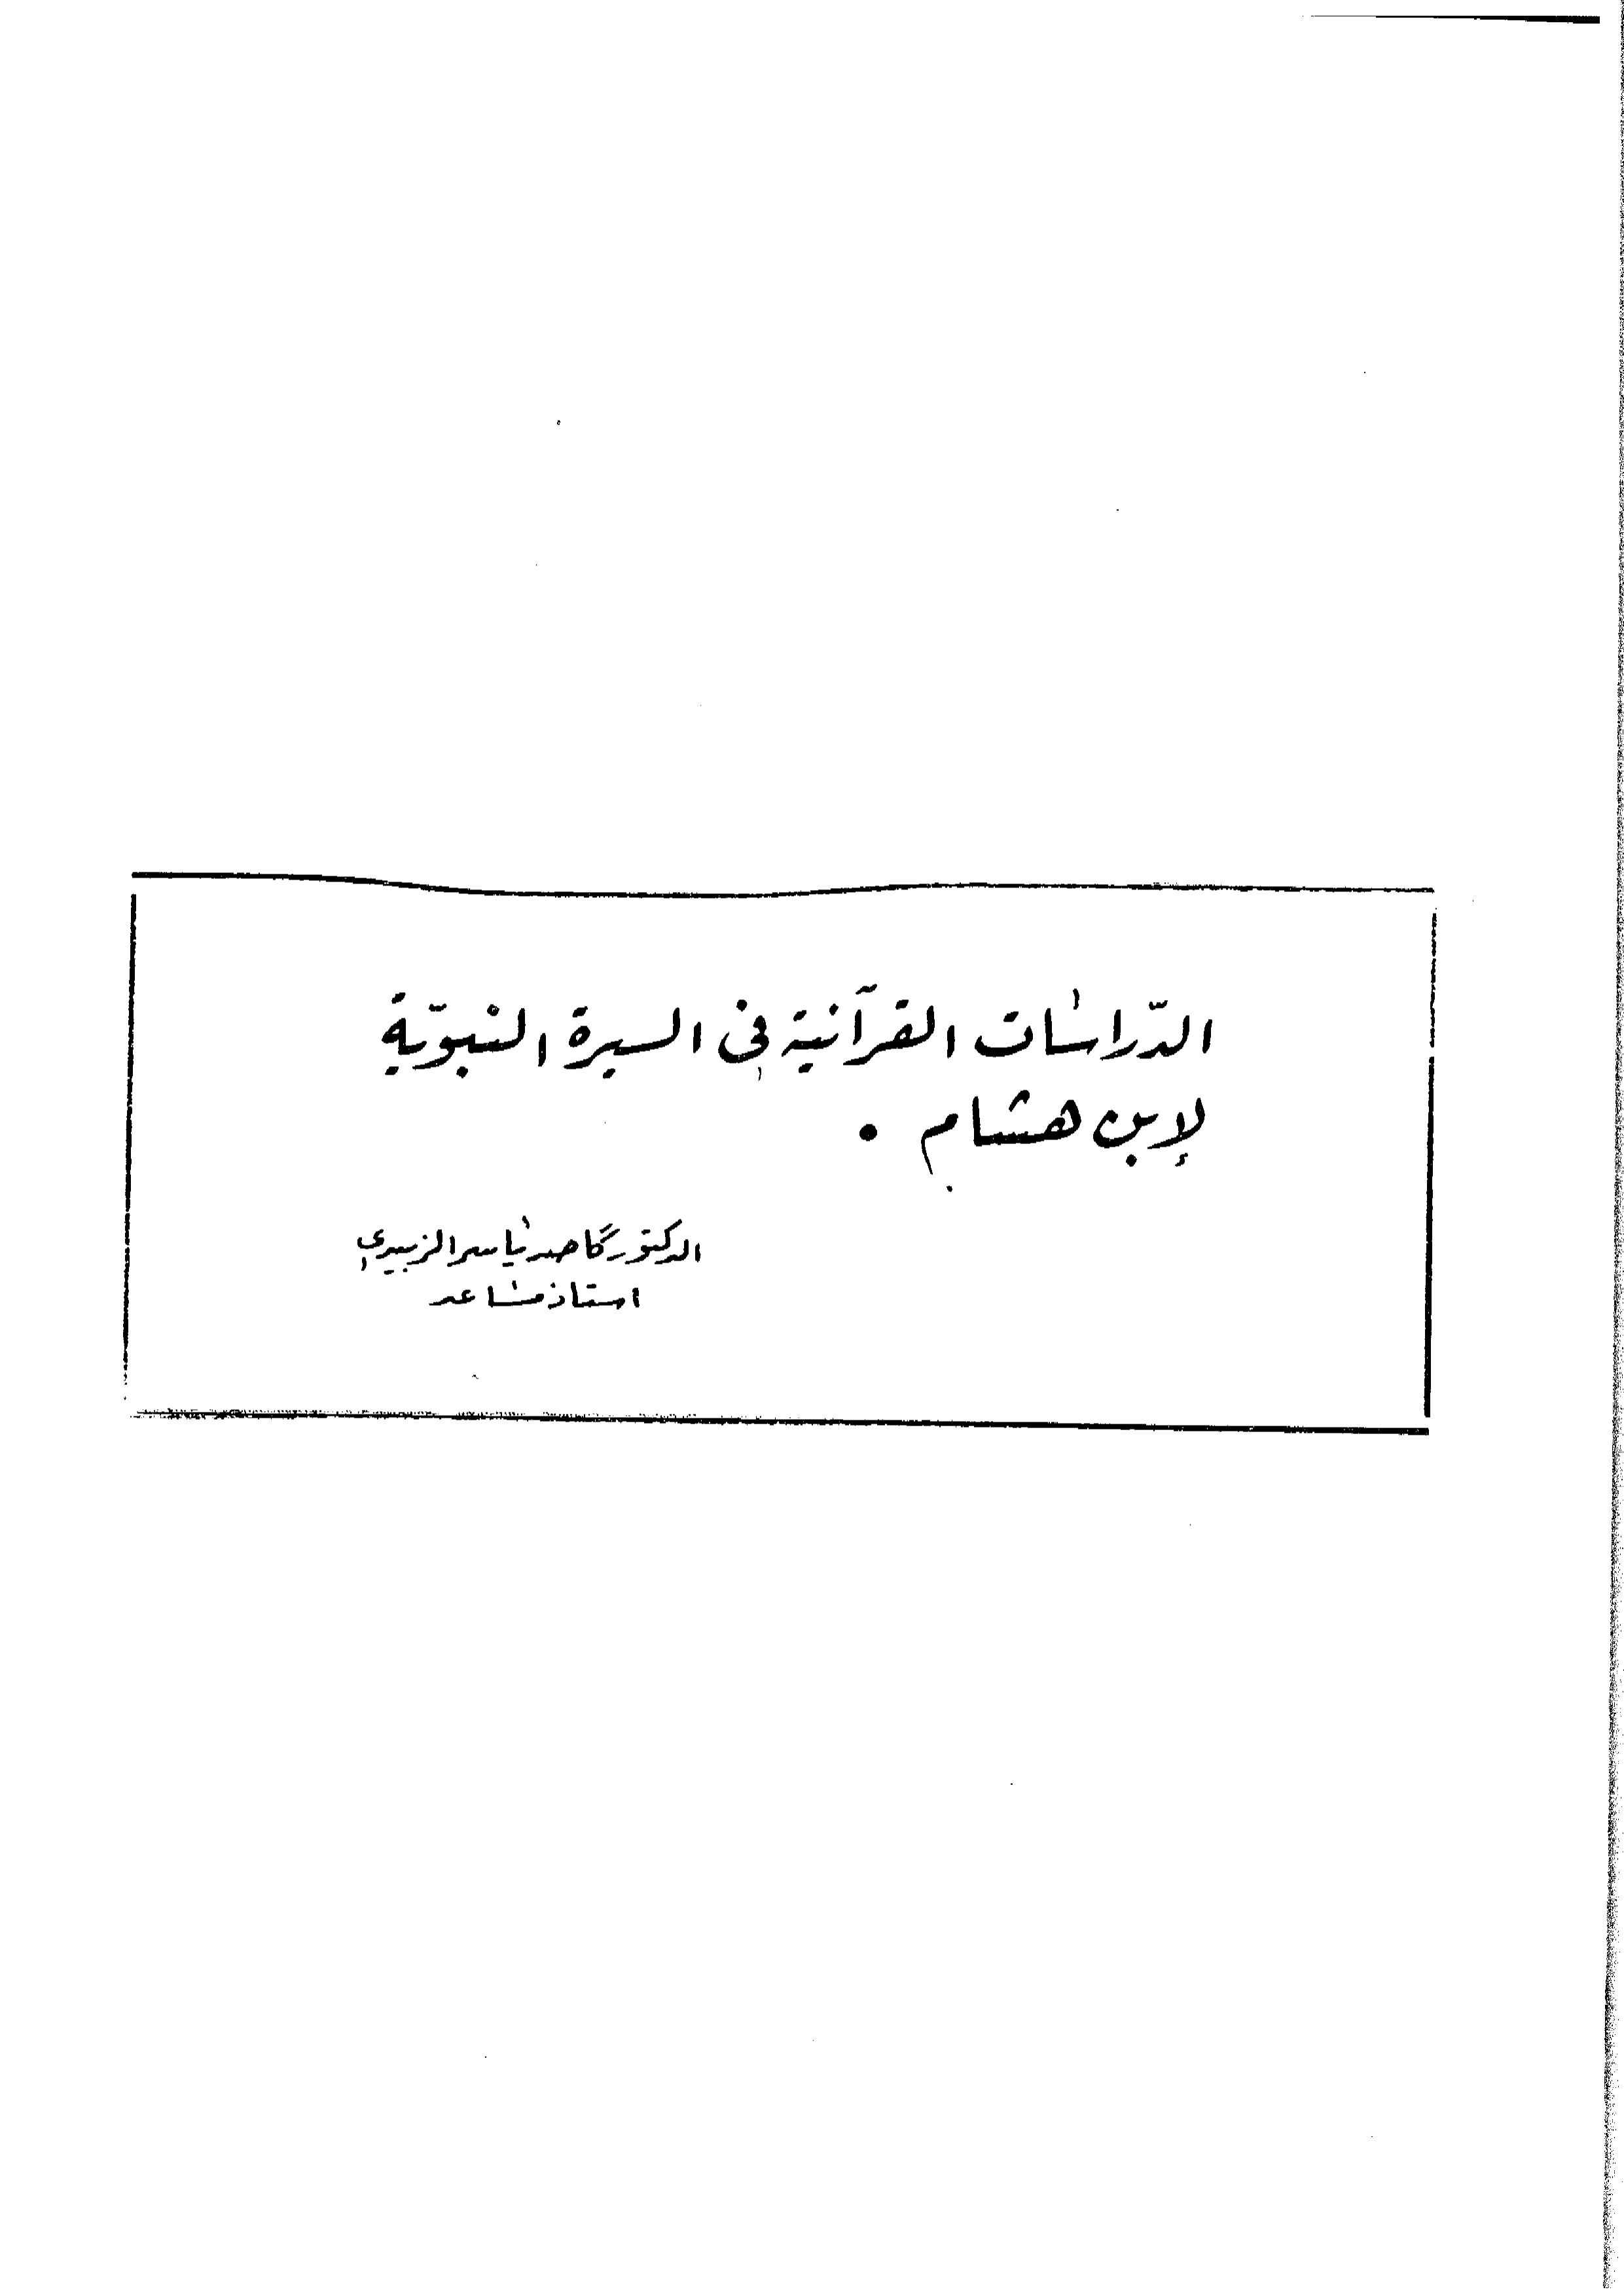 الدّراسات القرآنية في السيرة النبويّة
لإبن هشام .
الدكتور كاصد ياسر الزيدي
استاذ مساعد